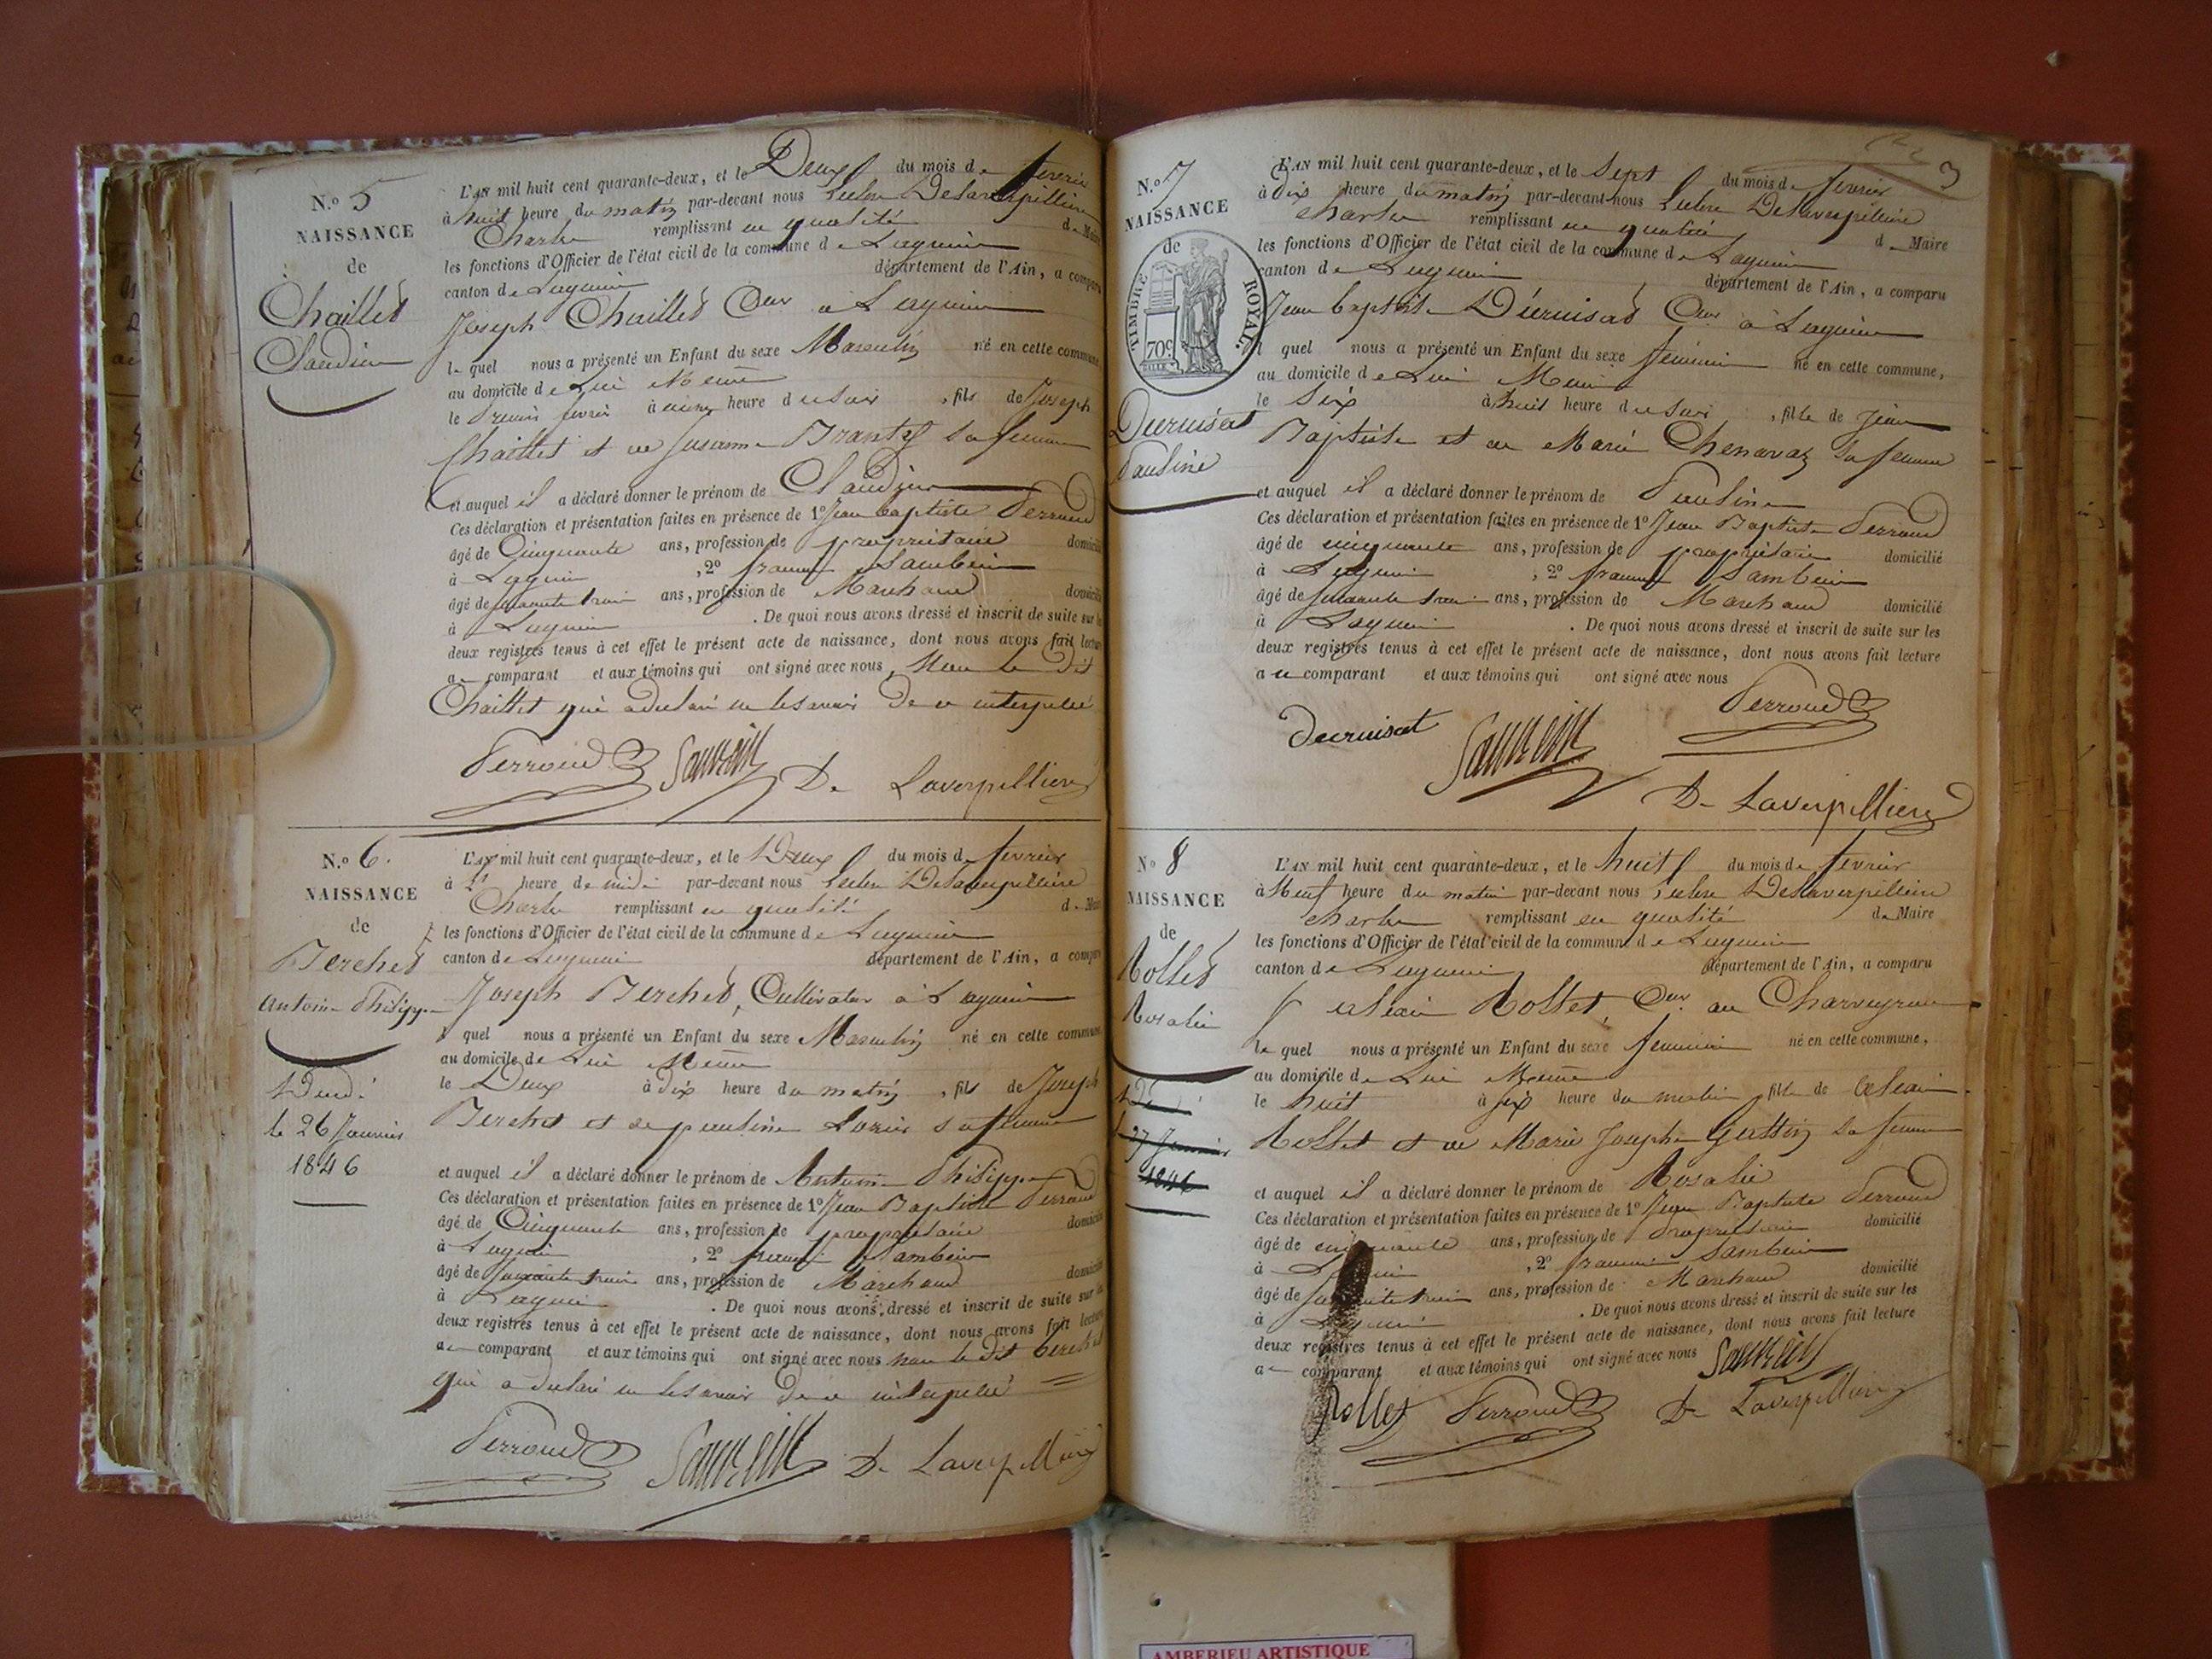 N.o 5
NAISSANCE
de
Chaillet
Claudius
L'AN mil huit cent quarante-deux, et le Deux du mois de fevrier
à huit heure du matin par-devant nous Delaverpilliere
Charles remplissant en qualité de Maire
les fonctions d'Officier de l'état civil de la commune de Lagnieu
canton de Lagnieu département de l'Ain, a comparu
Joseph Chaillet Cur à Lagnieu
le quel nous a présenté un Enfant du sexe Masculin né en cette commune,
au domicile de Lui Meme
le premier fevrier à heure du soir , fils de Joseph
Chaillet et de Susanne sa femme
et auquel il a déclaré donner le prénom de
Ces déclaration et présentation faites en présence de 1o Jean baptiste Perroud
âgé de Cinquante ans, profession de propriétaire domicilié
à Lagnieu , 2o
âgé de ans, profession de Marchand domicilié
à Lagnieu . De quoi nous avons dressé et inscrit de suite sur les
deux registres tenus à cet effet le présent acte de naissance, dont nous avons fait lecture
au comparant et aux témoins qui ont signé avec nous, Non le dit
Chaillet qui a declaré ne le savoir De ce interpellé
Perroud Sauvein De Laverpilliere
N.o 6.
NAISSANCE
de
Berchet
Antoine Philippe
Décédé
le 26 Janvier
1846
L'AN mil huit cent quarante-deux, et le Deux du mois de fevrier
à heure de midi par-devant nous Delaverpilliere
Charles remplissant en qualité de Maire
les fonctions d'Officier de l'état civil de la commune de Lagnieu
canton de Lagnieu département de l'Ain, a comparu
Joseph Berchet, Cultivateur à Lagnieu
le quel nous a présenté un Enfant du sexe Masculin né en cette commune,
au domicile de Lui Meme
le Deux à dix heure du matin , fils de Joseph
Berchet et de pauline sa femme
et auquel il a déclaré donner le prénom de Antoine Philippe
Ces déclaration et présentation faites en présence de 1o Jean Baptiste Perroud
âgé de Cinquante ans, profession de propriétaire domicilié
à Lagnieu , 2o
âgé de ans, profession de Marchand domicilié
à Lagnieu . De quoi nous avons dressé et inscrit de suite sur les
deux registres tenus à cet effet le présent acte de naissance, dont nous avons fait lecture
au comparant et aux témoins qui ont signé avec nous non le dit berchet
qui a declaré ne le savoir De ce interpellé
Perroud Sauvein De Laverpilliere
3
N.o 7
NAISSANCE
de
TIMBRE ROYAL
70c
Decruisat
Pauline
L'AN mil huit cent quarante-deux, et le Sept du mois de fevrier
à dix heure du matin par-devant nous Delaverpilliere
Charles remplissant en qualité de Maire
les fonctions d'Officier de l'état civil de la commune de Lagnieu
canton de Lagnieu département de l'Ain, a comparu
Jean baptiste Décruisat Cur à Lagnieu
le quel nous a présenté un Enfant du sexe feminin né en cette commune,
au domicile de Lui Meme
le Six à huit heure du soir , fille de Jean
Baptiste et de Marie Chenavaz sa femme
et auquel il a déclaré donner le prénom de Pauline
Ces déclaration et présentation faites en présence de 1o Jean Baptiste Perroud
âgé de cinquante ans, profession de propriétaire domicilié
à Lagnieu , 2o
âgé de ans, profession de Marchand domicilié
à Lagnieu . De quoi nous avons dressé et inscrit de suite sur les
deux registres tenus à cet effet le présent acte de naissance, dont nous avons fait lecture
au comparant et aux témoins qui ont signé avec nous
Perroud
Decruisat Sauvein
De Laverpilliere
No 8
NAISSANCE
de
Rollet
Rosalie
27 Janvier
1846
L'AN mil huit cent quarante-deux, et le huit du mois de fevrier
à Neuf heure du matin par-devant nous Delaverpilliere
Charles remplissant en qualité de Maire
les fonctions d'Officier de l'état civil de la commune de Lagnieu
canton de Lagnieu département de l'Ain, a comparu
Rollet, Cur au Charveyron
le quel nous a présenté un Enfant du sexe feminin né en cette commune,
au domicile de Lui Meme
le huit à six heure du matin fille de
Rollet et de Marie Josephe sa femme
et auquel il a déclaré donner le prénom de Rosalie
Ces déclaration et présentation faites en présence de 1o Jean Baptiste Perroud
âgé de cinquante ans, profession de Propriétaire domicilié
à Lagnieu , 2o
âgé de ans, profession de Marchand domicilié
à Lagnieu . De quoi nous avons dressé et inscrit de suite sur les
deux registres tenus à cet effet le présent acte de naissance, dont nous avons fait lecture
au comparant et aux témoins qui ont signé avec nous Sauvein
Rollet Perroud De Laverpilliere
AMBERIEU ARTISTIQUE